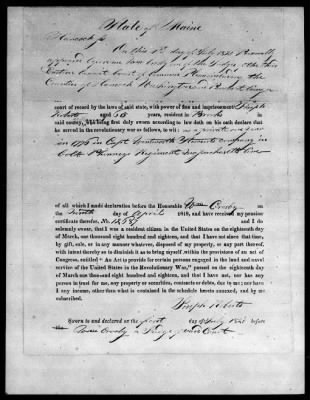 State of Maine
Hancock ss
On this 1st day of July 1820 Personally
appeared before me
Eastern Circuit Court of Common Pleas
Counties of Hancock Washington and Penobscot being a
court of record by the laws of said state, with power of fine and imprisonment Joseph
Roberts aged 66 years, resident in Brooks in
said county, who being first duly sworn according to law doth on his oath declare that
he served in the revolutionary war as follows, to wit: as a private one year
in 1776 in Capt Wentworth Stewarts company in
Colo Phinneys Regiment Massachusetts line
of all which I made declaration before the Honorable Wm Crosby on
the day of April 1818, and have received my pension
certificate therefor, No. and I do
solemnly swear, that I was a resident citizen in the United States on the eighteenth day
of March, one thousand eight hundred and eighteen, and that I have not since that time,
by gift, sale, or in any manner whatever, disposed of my property, or any part thereof,
with intent thereby so to diminish it as to bring myself within the provisions of an act of
Congress, entitled " An Act to provide for certain persons engaged in the land and naval
service of the United States in the Revolutionary War," passed on the eighteenth day
of March one thousand eight hundred and eighteen, and that I have not, nor has any
person in trust for me, any property or securities, contracts or debts, due to me; nor have
I any income, other than what is contained in the schedule hereto annexed, and by me
subscribed.
Joseph Roberts
Sworn to and declared on the first day of July 1820 before
Crosby a Judge of said Court